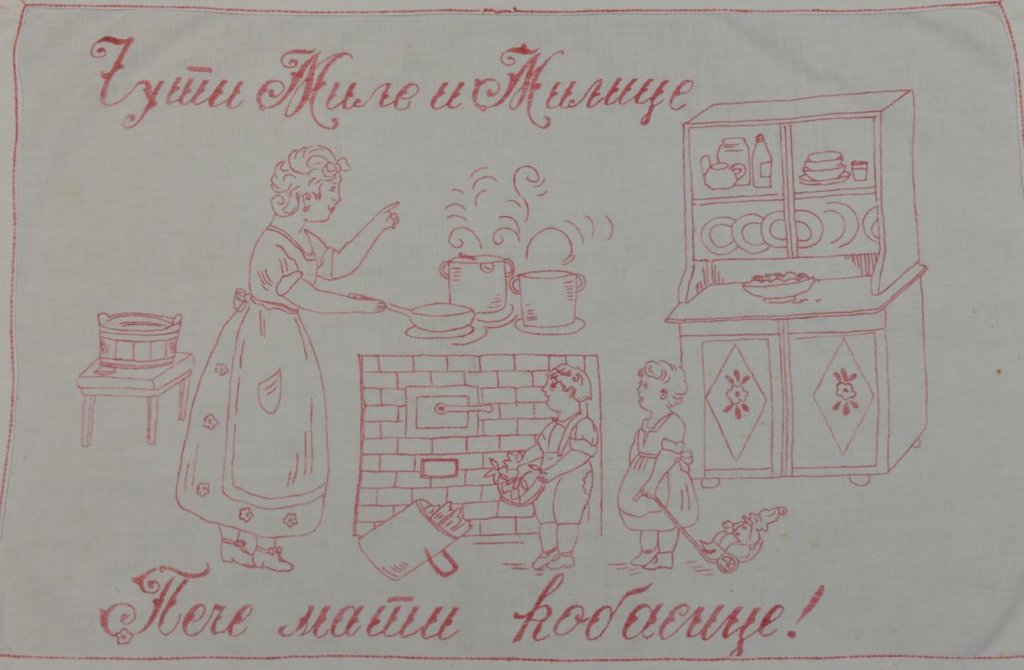 Ћути Миле и Милице
Пече мати кобасице!